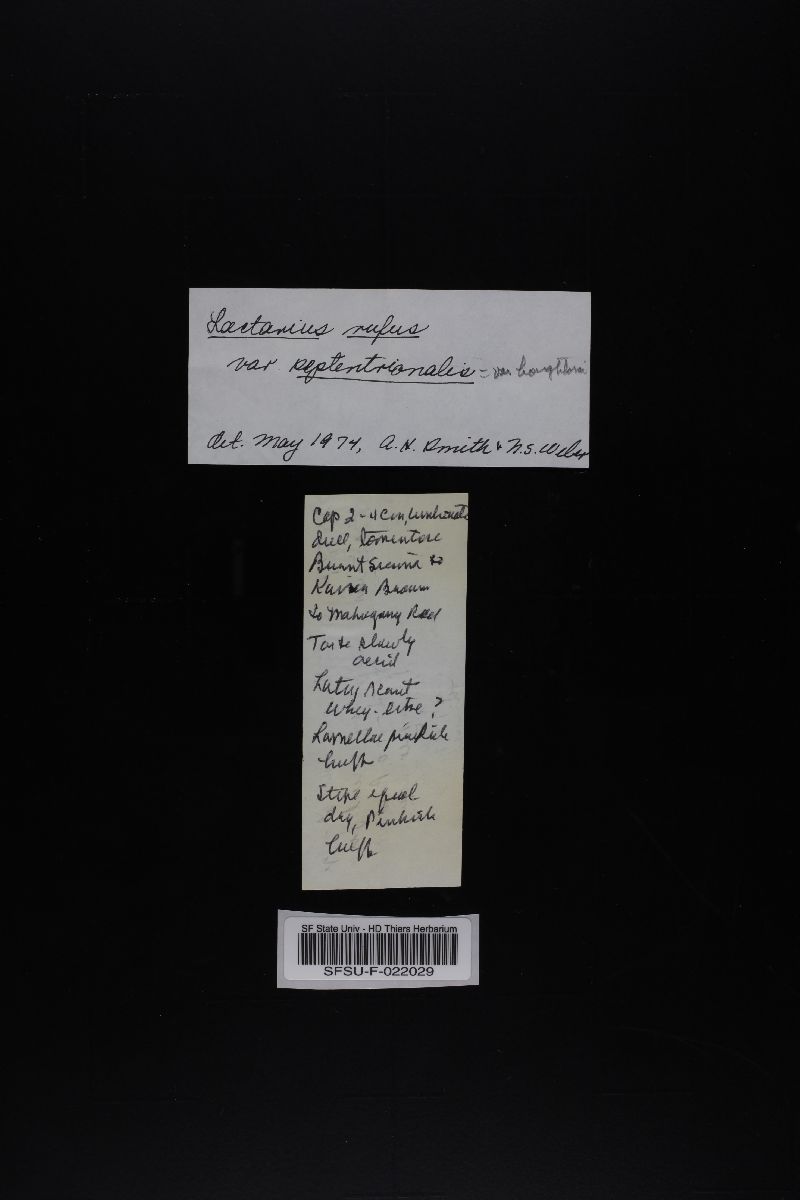 Lactarius rufus
var septentrionalis = var
det. May 1974, A. H. Smith & N. S. Weber
Cap 2-4 cm, umbonate
dull, tomentose
Burnt Sienna to
Kaiser Brown
to Mahogany Red
Taste slowly
acrid
Latex scant
whey-like ?
Lamellae pinkish
buff
Stipe equal
dry, pinkish
buff
SF State Univ - HD Thiers Herbarium
SFSU-F-022029